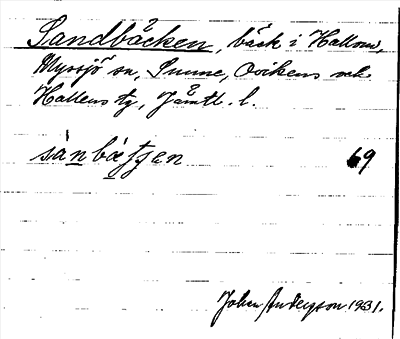 Sandbäcken, bäck i Hallom,
Myssjö sn, Sunne, Ovikens ock
Hallens tg, Jämtl. l.
sánbætjen 69
Johan Andersson 1931.